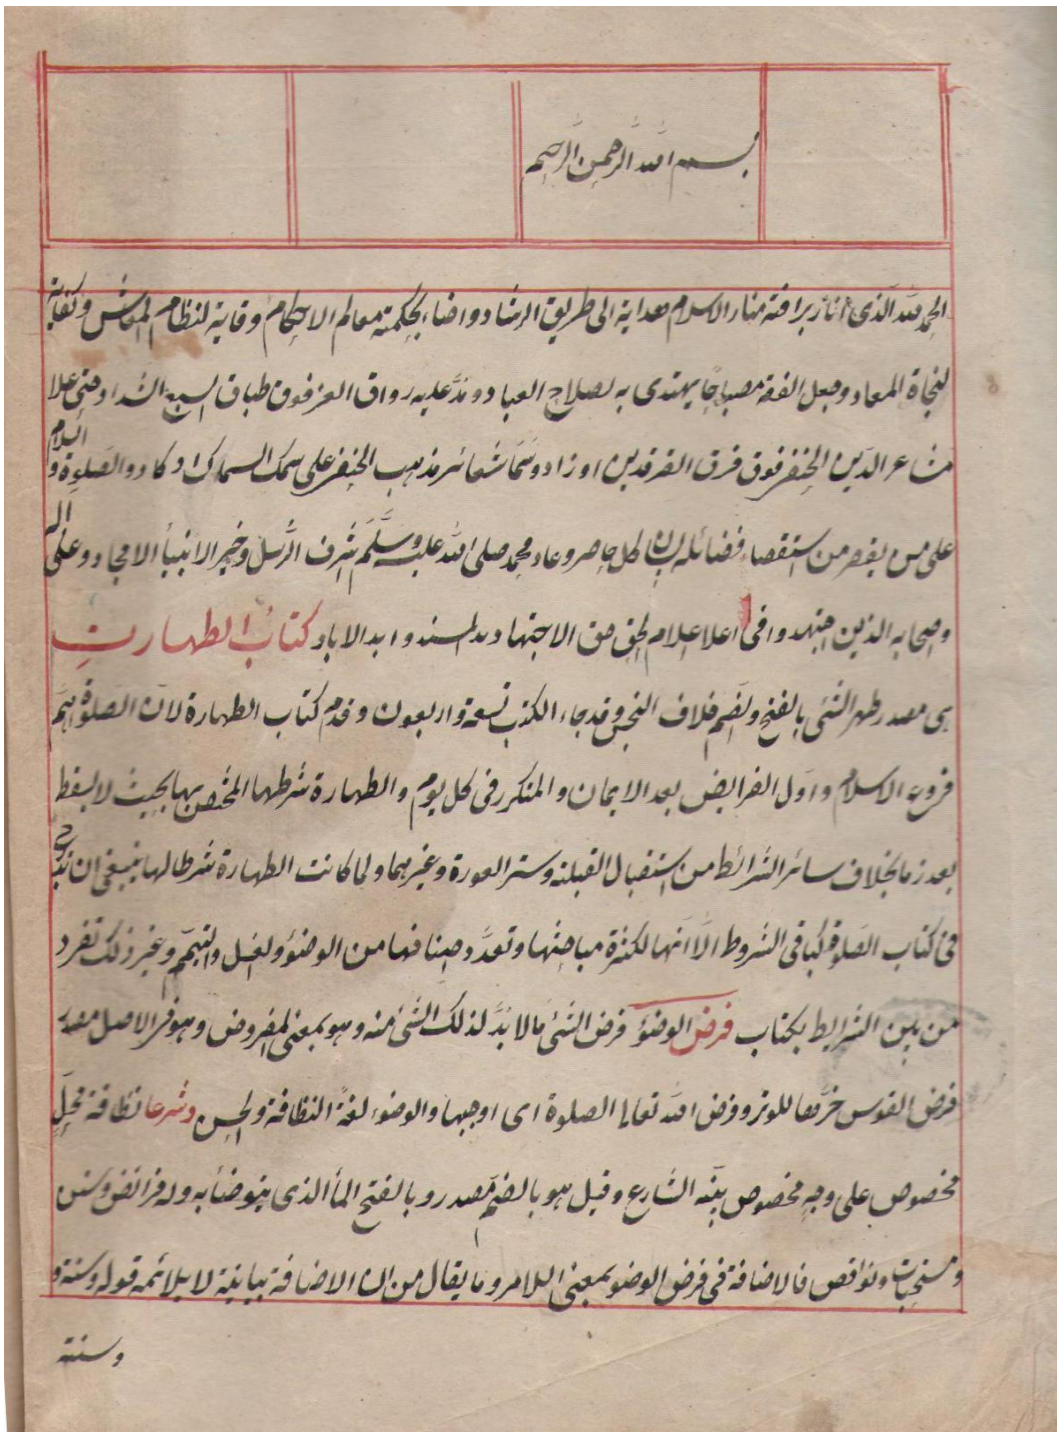 بسم الله الرحمن الرحيم
الحمد لله الذى انار برافته منار الاسلام هداية الى طريق الرشاد واضاء بحكمته معالم الاحكام وقاية لنظام المعاش وكفاية
لنجاة المعاد وجعل الفقه مصباحًا يهتدى به لصلاح العباد ومدَّ عليه رواق العز فوق طباق السبع الشداد حتى علا
مشاعر الدين الحنفى فوق فرق الفرقدين او زاد وسَمَا شعائر مذهب الحنفى على سمك السماك او كاد والصلوة والسلام
على من يقصر من استقصاء فضائله لسان كل حاصر وعاد محمد صلى الله عليه وسلَّم شرف الرُّسل وخير الانبيأ الامجاد وعلى اله
واصحابه الذين اجتهدوا فى اعلا اعلام الحق حق الاجتهاد ابد الاباد كتاب الطهارت
هى مصدر طهر الشئى بالفتح والضم خلاف النجس وقد جاء الكتب تسعة واربعون وقدم كتاب الطهارة لان الصلوة اهم
فروع الاسلام واول الفرايض بعد الايمان والمتكرر فى كل يوم والطهارة شرطها المختص بها بحيث لا يسقط
بعذر ما بخلاف سائر الشرائط من استقبال القبلة وستر العورة وغيرهما ولما كانت الطهارة شرطا لها ينبغى ان
فى كتاب الصلوة كباقى الشروط الَّا انها لكثرة مباحثها وتعدَّد اصنافها من الوضوُ والغسل والتيمم وغير ذلك تفرد
من بين الشرايط بكتاب فرض الوضوُ فرض الشئ ما لا بدَّ لذلك الشئ منه وهو بمعنى المفروض وهو فى الاصل مصدر
فرض القوس حزَّها للوتر وفرض الله تعالى الصلوة اى اوجبها والوضوء لغةً النظافة والحسن وشرعا نظافة محلٍ
مخصوص على وجهٍ مخصوص بيَّنه الشارع وقيل هو بالضم مصدر وبالفتح المأ الذى يتوضأ به وله فرائض وسنن
ومستحبات ونواقض فالاضافة فى فرض الوضو بمعنى اللام وما يقال من ان الاضافة بيانية لا يلائمه قوله وسنة و
وسنة